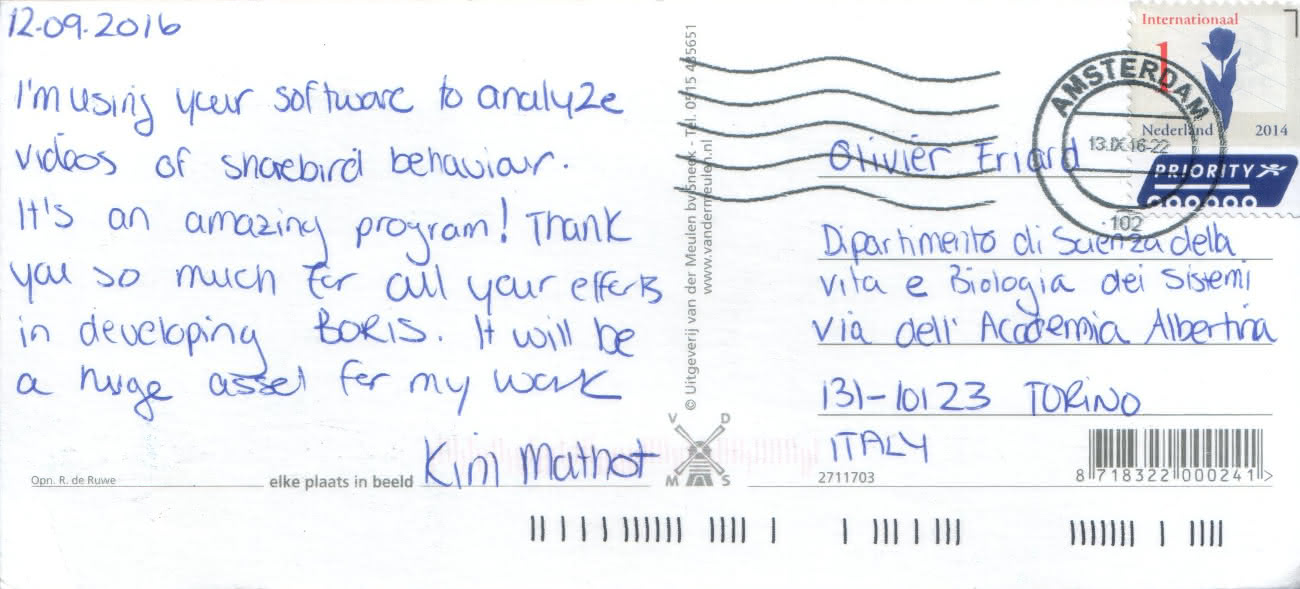 12.09.2016
I'm using your software to analyze
videos of shorebird behaviour.
It's an amazing program! Thank
you so much for all your efforts
in developing BORIS. It will be
a huge asset for my work
Kim Mathot
Opn. R. de Ruwe
elke plaats in beeld
© Uitgeverij van der Meulen bv Sneek - Tel. 0515 435651
www.vandermeulen.nl
V D
M S
Internationaal
1
Nederland 2014
PRIORITY
AMSTERDAM
13.IX.16-22
102
Olivier Friard
Dipartimento di Scienza della
vita e Biologia dei Sistemi
Via dell' Accademia Albertina
131-10123 TORINO
ITALY
2711703
8 718322 000241 >